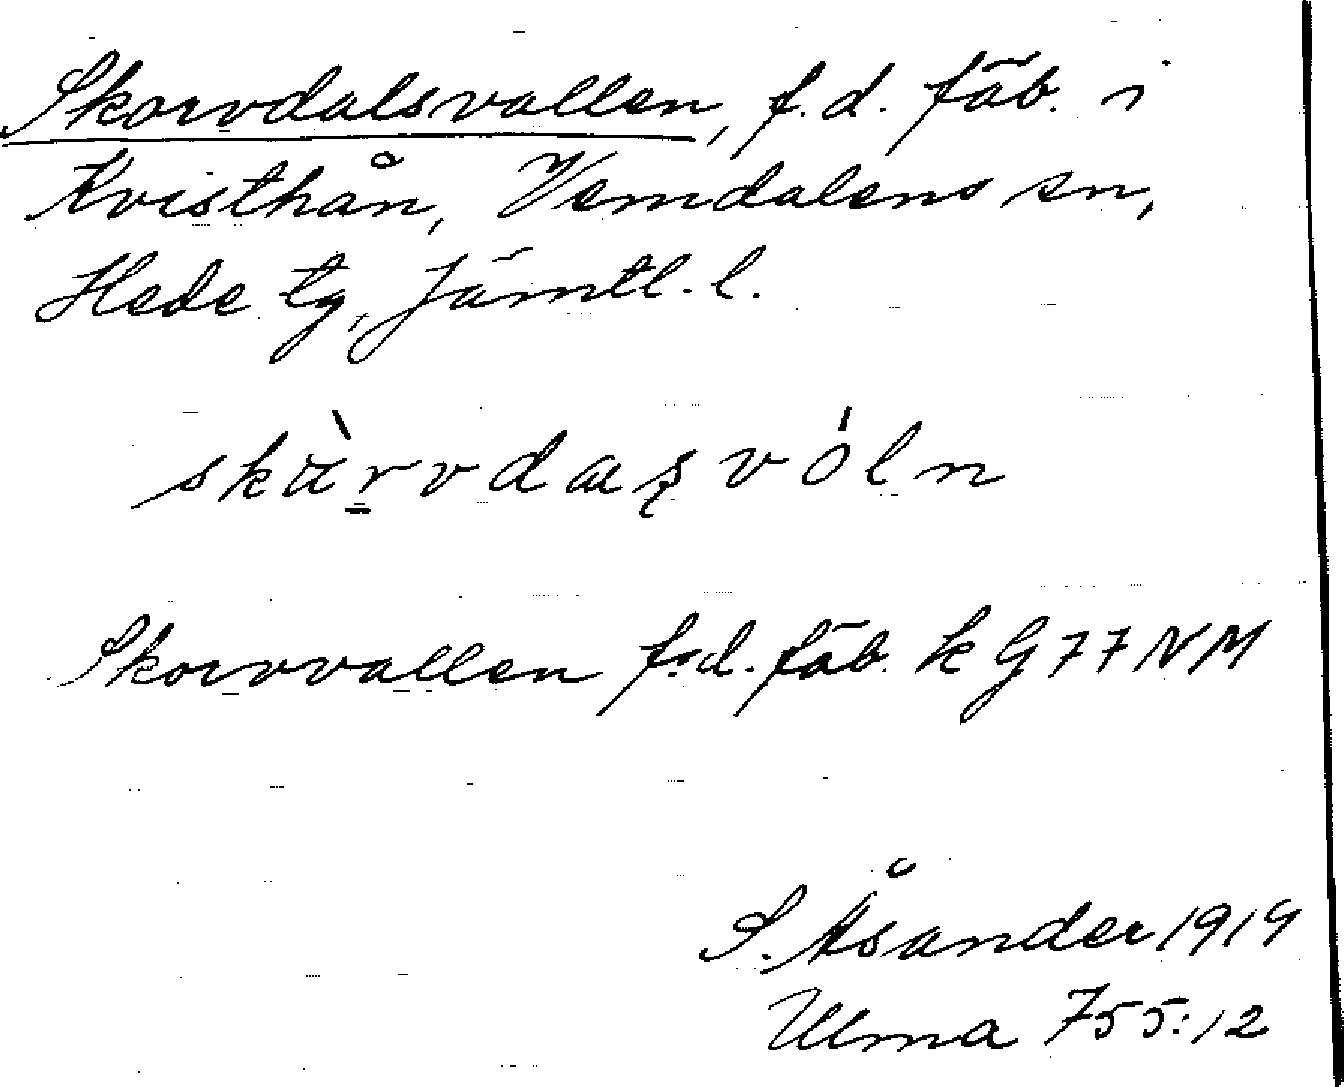 Skorvdalsvallen, f.d. fäb. i
Kvisthån, Vemdalens sn,
Hede tg, Jämtl. l.
skàrvdæʂvóln
Skorvvallen f.d. fäb. k G77NM
S. Åsander 1919
Ulma 755:12